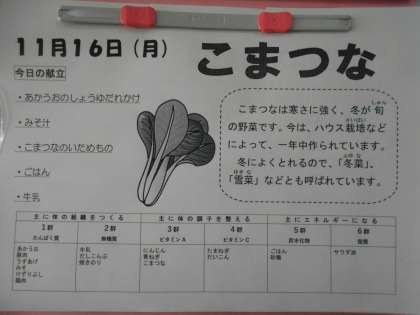 11月16日（月）
こまつな
今日の献立
・あかうおのしょうゆだれかけ
・みそ汁
・こまつなのいためもの
・ごはん
・牛乳
こまつなは寒さに強く、冬が旬
しゅん
の野菜です。今は、ハウス栽培など
さいばい
によって、一年中作られています。
冬によくとれるので、「冬菜」、
ふゆな
「雪菜」などとも呼ばれています。
主に体の組織をつくる
主に体の調子を整える
主にエネルギーになる
1群
2群
3群
4群
5群
6群
たんぱく質
無機質
ビタミンA
ビタミンC
炭水化物
脂質
あかうお
豚肉
うすあげ
みそ
けずりぶし
鶏肉
牛乳
だしこんぶ
焼きのり
にんじん
青ねぎ
こまつな
たまねぎ
だいこん
ごはん
砂糖
サラダ油